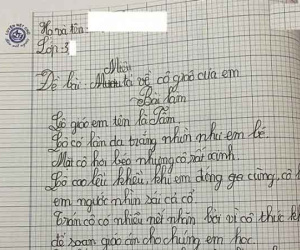 Họ và tên:
Lớp: 3
Miêu
Đề bài: tả về cô giáo của em
Bài làm
Cô giáo em tên là Tâm.
Cô có làn da trắng nhìn như em bé.
Mặt cô hơi béo nhưng cô rất xinh.
Cô cao lêu khêu, khi em đứng gần cùng, cô
em người nhìn sau cả cổ.
Trán cô có nhiều nết nhăn bởi vì cô thức kh
để soạn giáo án cho chúng em học.